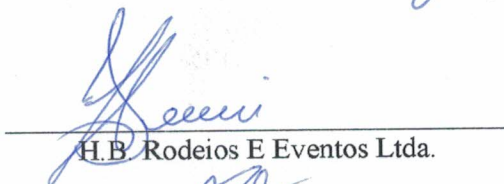 H.B. Rodeios E Eventos Ltda.